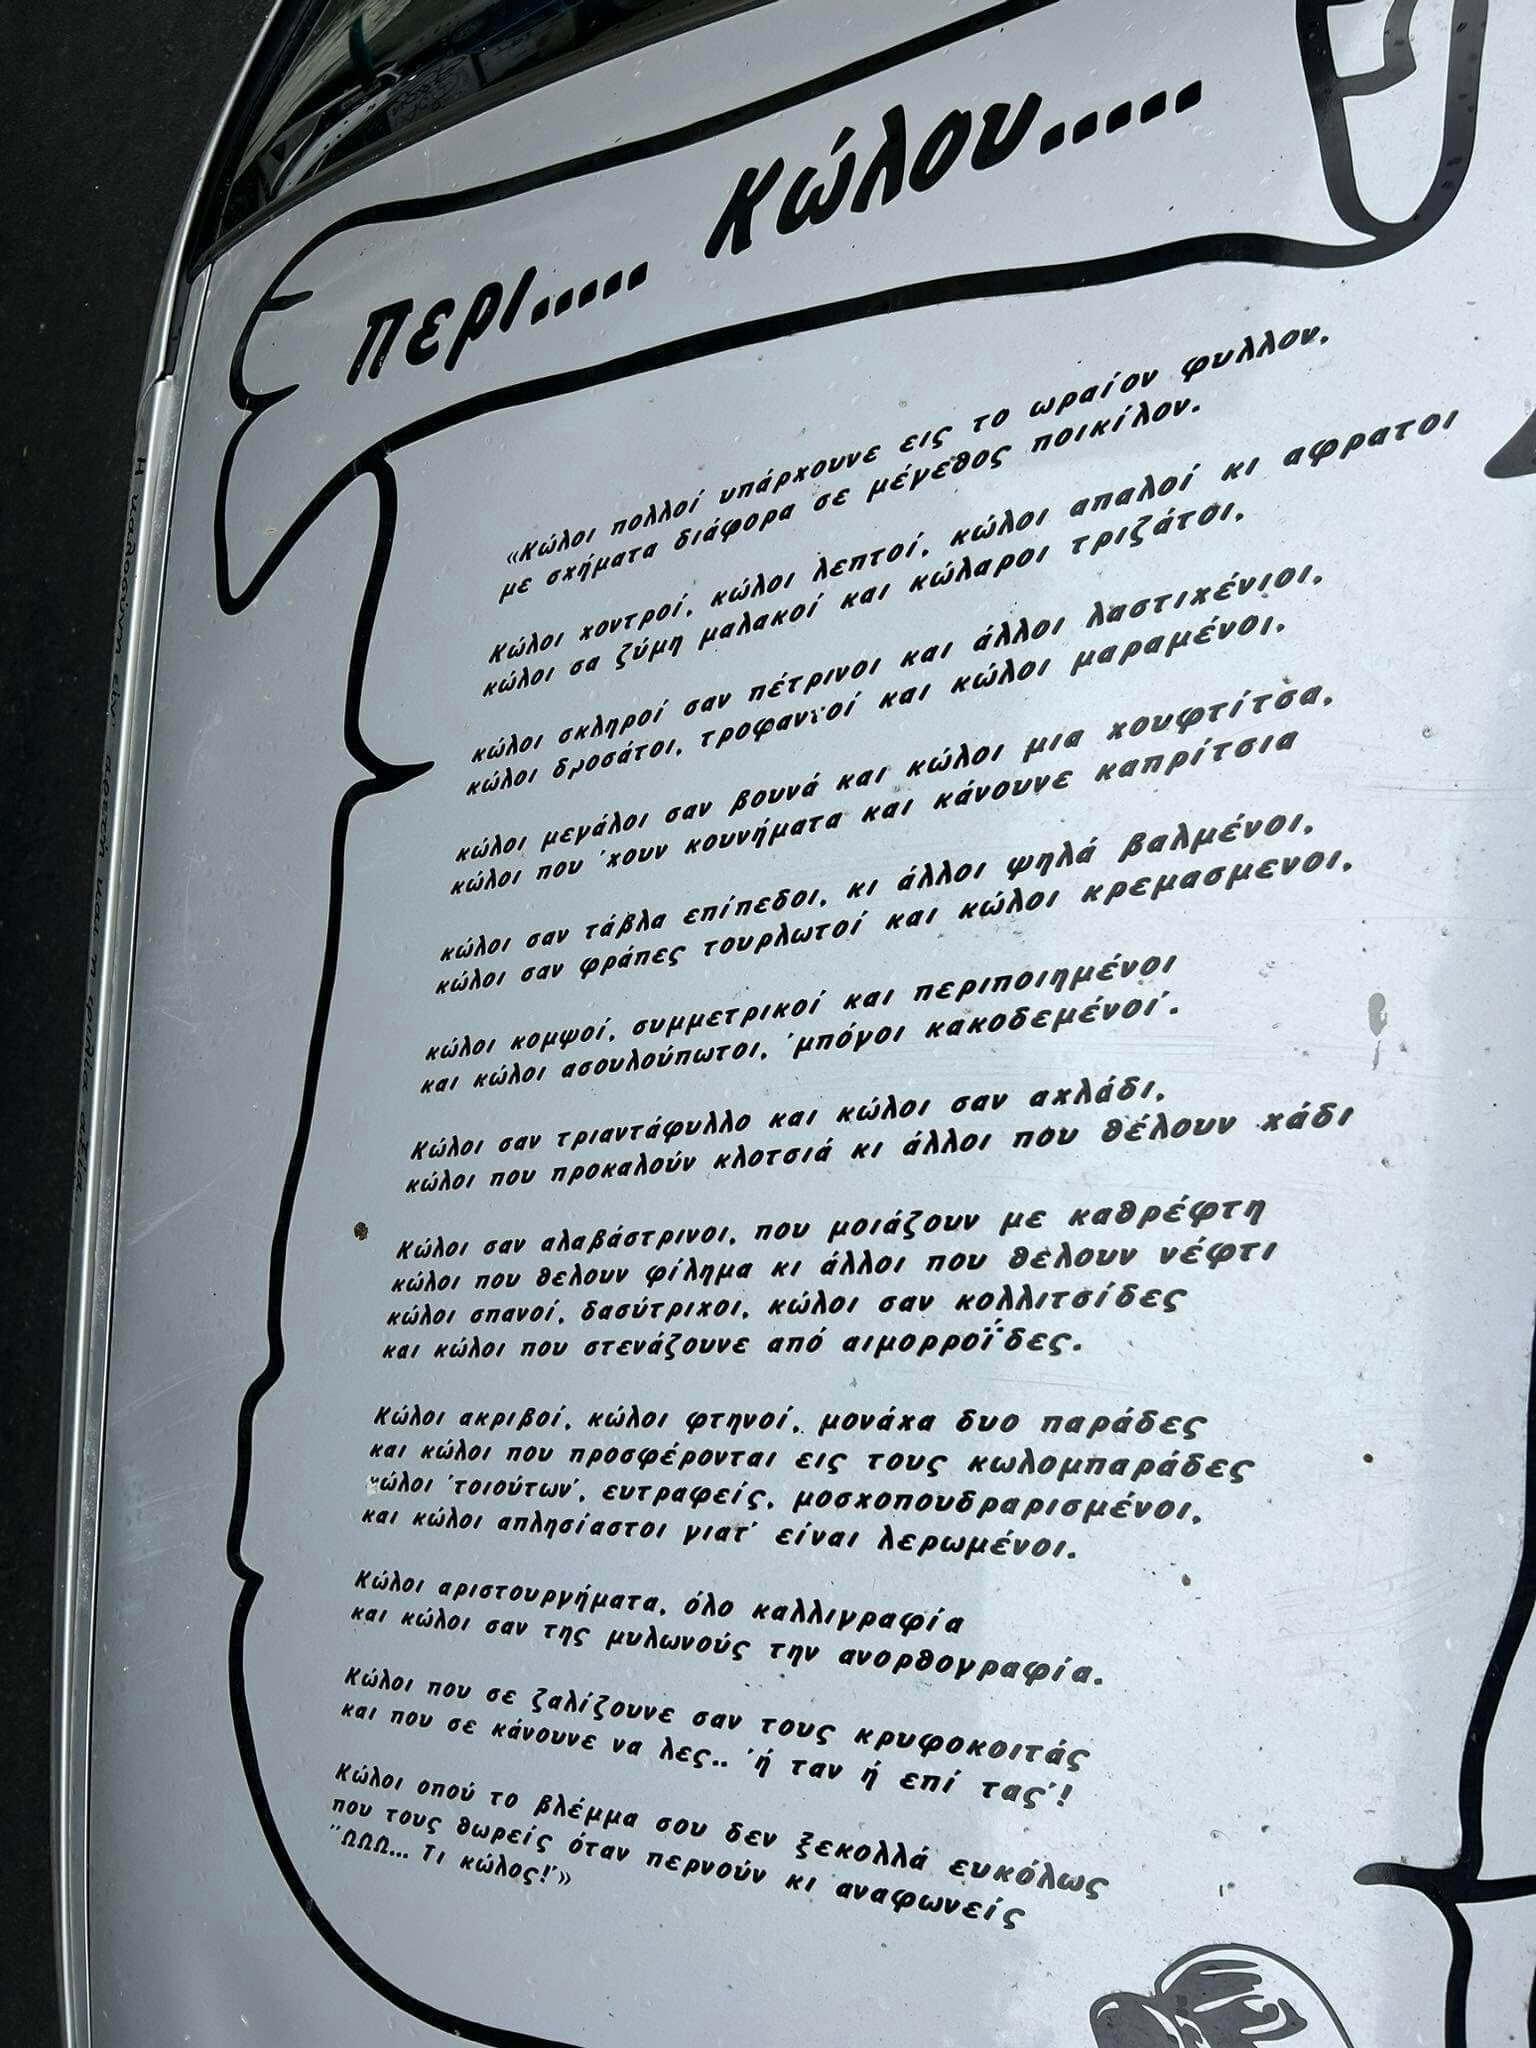 Περι..... Κώλου.....
«Κώλοι πολλοί υπάρχουνε εις το ωραίον φυλλον,
με σχήματα διάφορα σε μέγεθος ποικίλον.
Κώλοι χοντροί, κώλοι λεπτοί, κώλοι απαλοί κι αφρατοι
κώλοι σα ζύμη μαλακοί και κώλαροι τριζάτοι,
κώλοι σκληροί σαν πέτρινοι και άλλοι λαστιχένιοι,
κώλοι δροσάτοι, τροφαντοί και κώλοι μαραμένοι,
κώλοι μεγάλοι σαν βουνά και κώλοι μια χουφτίτσα,
κώλοι που 'χουν κουνήματα και κάνουνε καπρίτσια
κώλοι σαν τάβλα επίπεδοι, κι άλλοι ψηλά βαλμένοι,
κώλοι σαν φράπες τουρλωτοί και κώλοι κρεμασμενοι,
κώλοι κομψοί, συμμετρικοί και περιποιημένοι
και κώλοι ασουλούπωτοι, 'μπόγοι κακοδεμένοι'.
Κώλοι σαν τριαντάφυλλο και κώλοι σαν αχλάδι,
κώλοι που προκαλούν κλοτσιά κι άλλοι που θέλουν χάδι
Κώλοι σαν αλαβάστρινοι, που μοιάζουν με καθρέφτη
κώλοι που θελουν φίλημα κι άλλοι που θέλουν νέφτι
κώλοι σπανοί, δασύτριχοι, κώλοι σαν κολλιτσίδες
και κώλοι που στενάζουνε από αιμορροΐδες.
Κώλοι ακριβοί, κώλοι φτηνοί, μονάχα δυο παράδες
και κώλοι που προσφέρονται εις τους κωλομπαράδες
κώλοι 'τοιούτων', ευτραφείς, μοσχοπουδραρισμένοι,
και κώλοι απλησίαστοι γιατ' είναι λερωμένοι.
Κώλοι αριστουργήματα, όλο καλλιγραφία
και κώλοι σαν της μυλωνούς την ανορθογραφία.
Κώλοι που σε ζαλίζουνε σαν τους κρυφοκοιτάς
και που σε κάνουνε να λες.. 'ή ταν ή επί τας'!
Κώλοι οπού το βλέμμα σου δεν ξεκολλά ευκόλως
που τους θωρείς όταν περνούν κι αναφωνείς
"ΩΩΩ... Τι κώλος!'»